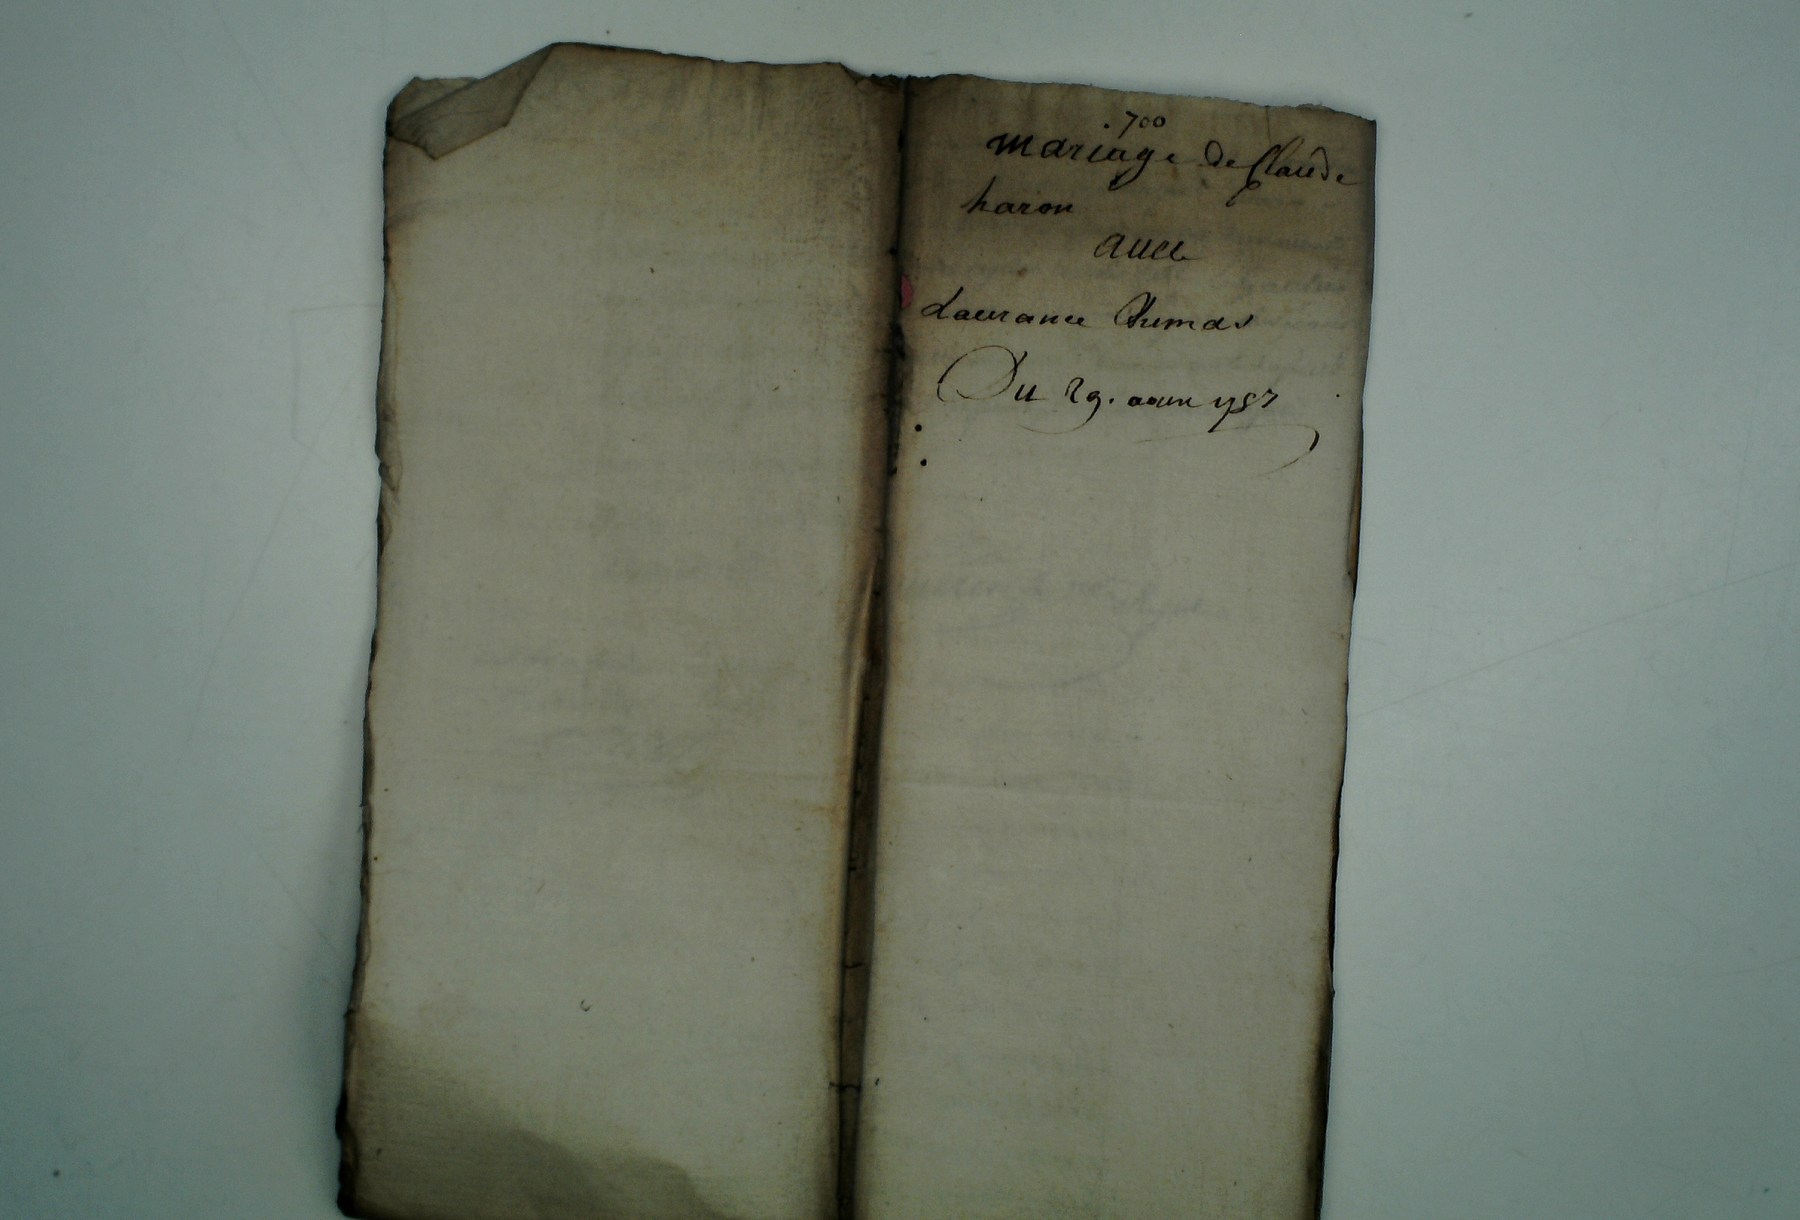 700
mariage de Claude
haron
auec
Laurance Dumas
Du 29. aoust 1757